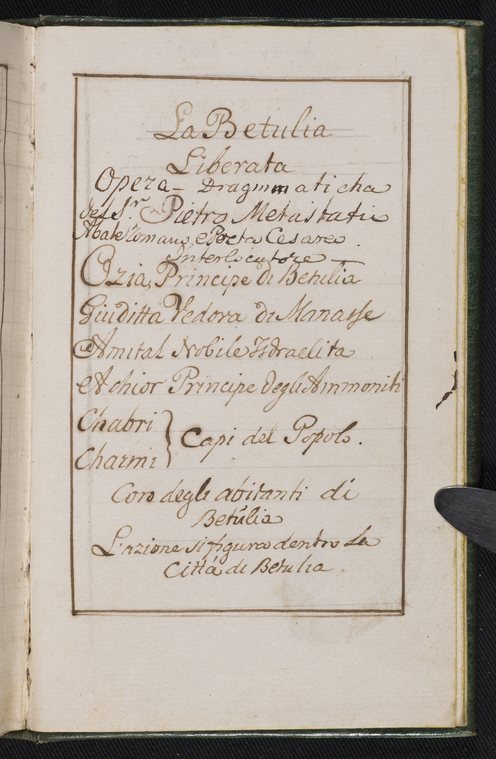 La Betulia
Liberata
Opera Dragmmaticha
del Sr. Pietro Metastatie
Abate Romano, e Poeta Cesareo.
Interlocutore
Ozia, Principe di Betulia
Giuditta Vedova di Manasse
Amital Nobile Isdraelita
Achior Principe degli Ammoniti
Chabri
Charmi } Capi del Popolo.
Coro degli abitanti di
Betulia
L'azione si figura dentro la
Città di Betulia.